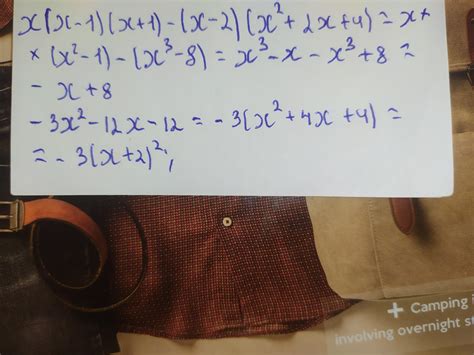 x(x-1)(x+1)-(x-2)(x²+2x+4)=x×
×(x²-1)-(x³-8)=x³-x-x³+8=
-x+8
-3x²-12x-12=-3(x²+4x+4)=
=-3(x+2)²;
+ Camping i
involving overnight s